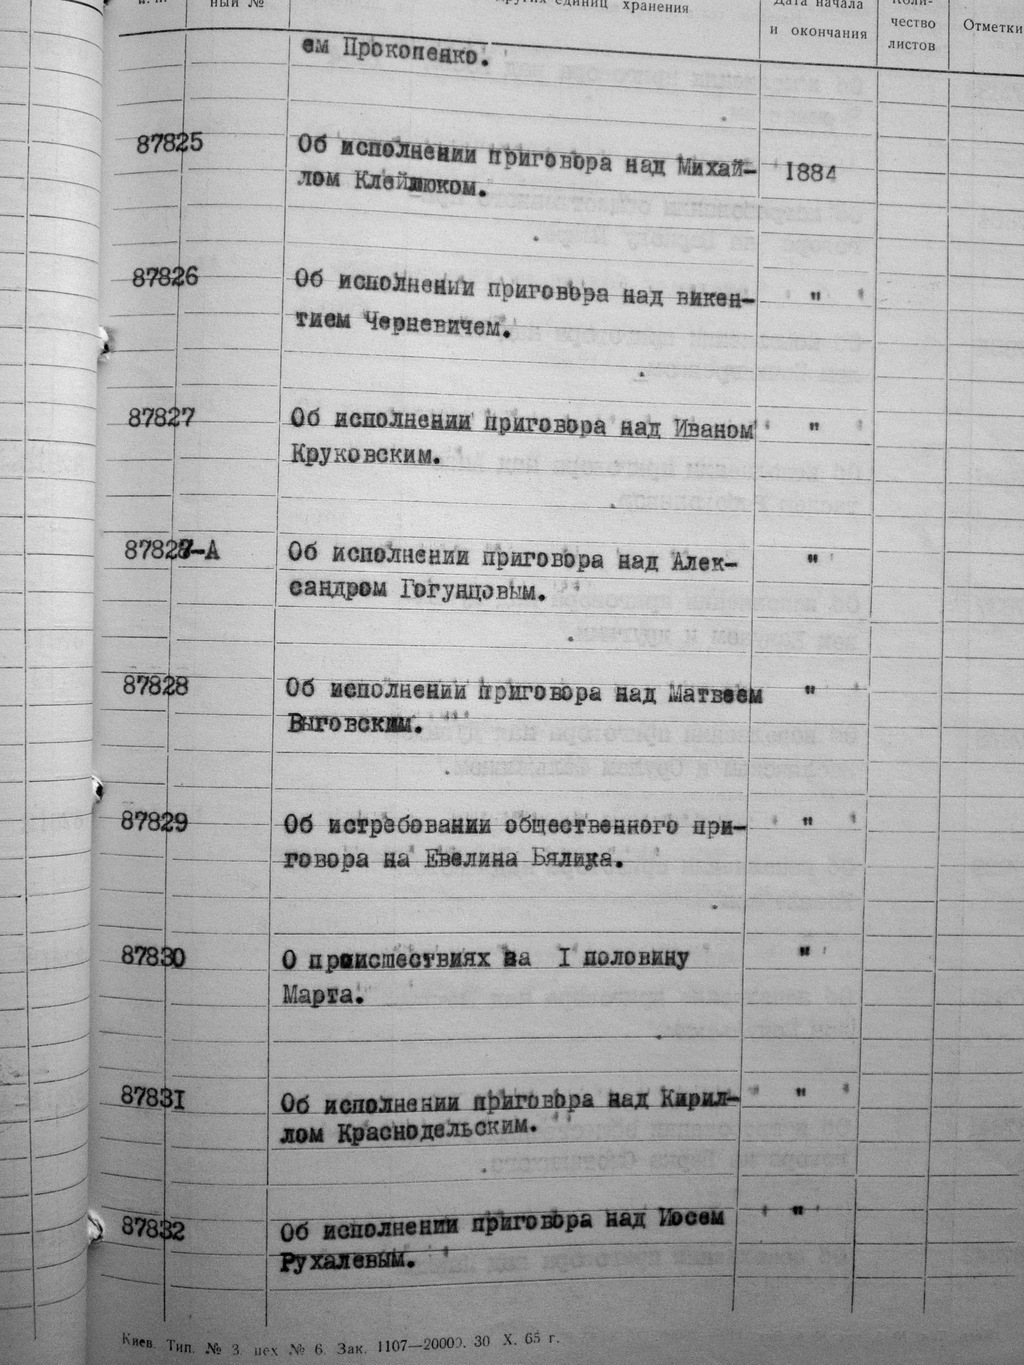 ный №
других единиц хранения
Дата начала
и окончания
Коли-
чество
листов
Отметки
ем Прокопенко.
87825 Об исполнении приговора над Михай- 1884
лом Клеймюком.
87826 Об исполнении приговора над викен- "
тием Черневичем.
87827 Об исполнении приговора над Иваном "
Круковским.
87827-А Об исполнении приговора над Алек- "
сандром Гогунцовым.
87828 Об исполнении приговора над Матвеем "
Выговским.
87829 Об истребовании общественного при- "
говора на Евелина Бялика.
87830 О происшествиях за I половину "
Марта.
87831 Об исполнении приговора над Кирил- "
лом Краснодельским.
87832 Об исполнении приговора над Иосем "
Рухалевым.
Киев. Тип. № 3. цех № 6. Зак. 1107—20000. 30 X. 65 г.